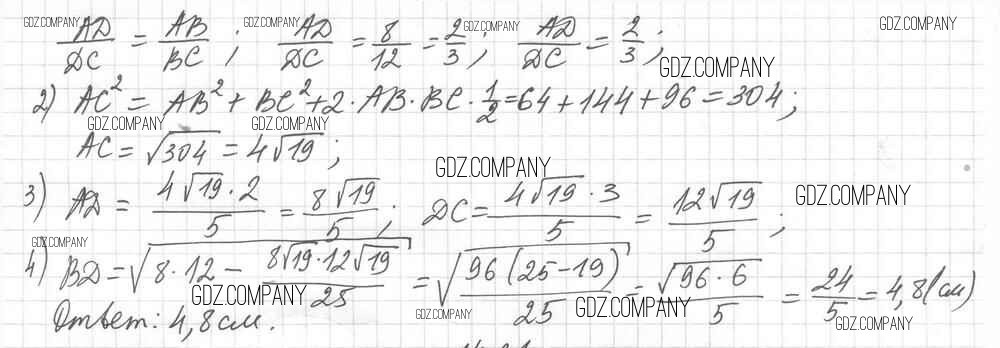 GDZ.COMPANY GDZ.COMPANY GDZ.COMPANY GDZ.COMPANY
AD/DC = AB/BC ; AD/DC = 8/12 = 2/3 ; AD/DC = 2/3 ;
GDZ.COMPANY
2) AC² = AB² + BC² + 2 · AB · BC · 1/2 = 64 + 144 + 96 = 304 ;
GDZ.COMPANY GDZ.COMPANY
AC = √304 = 4√19 ;
GDZ.COMPANY
3) AD = 4√19 · 2/5 = 8√19/5 ; DC = 4√19 · 3/5 = 12√19/5 ;
GDZ.COMPANY
GDZ.COMPANY
4) BD = √(8 · 12 − 8√19 · 12√19/25) = √(96(25 − 19)/25) = √(96 · 6)/5 = 24/5 = 4,8 (см)
GDZ.COMPANY GDZ.COMPANY GDZ.COMPANY GDZ.COMPANY
Ответ: 4,8 см.